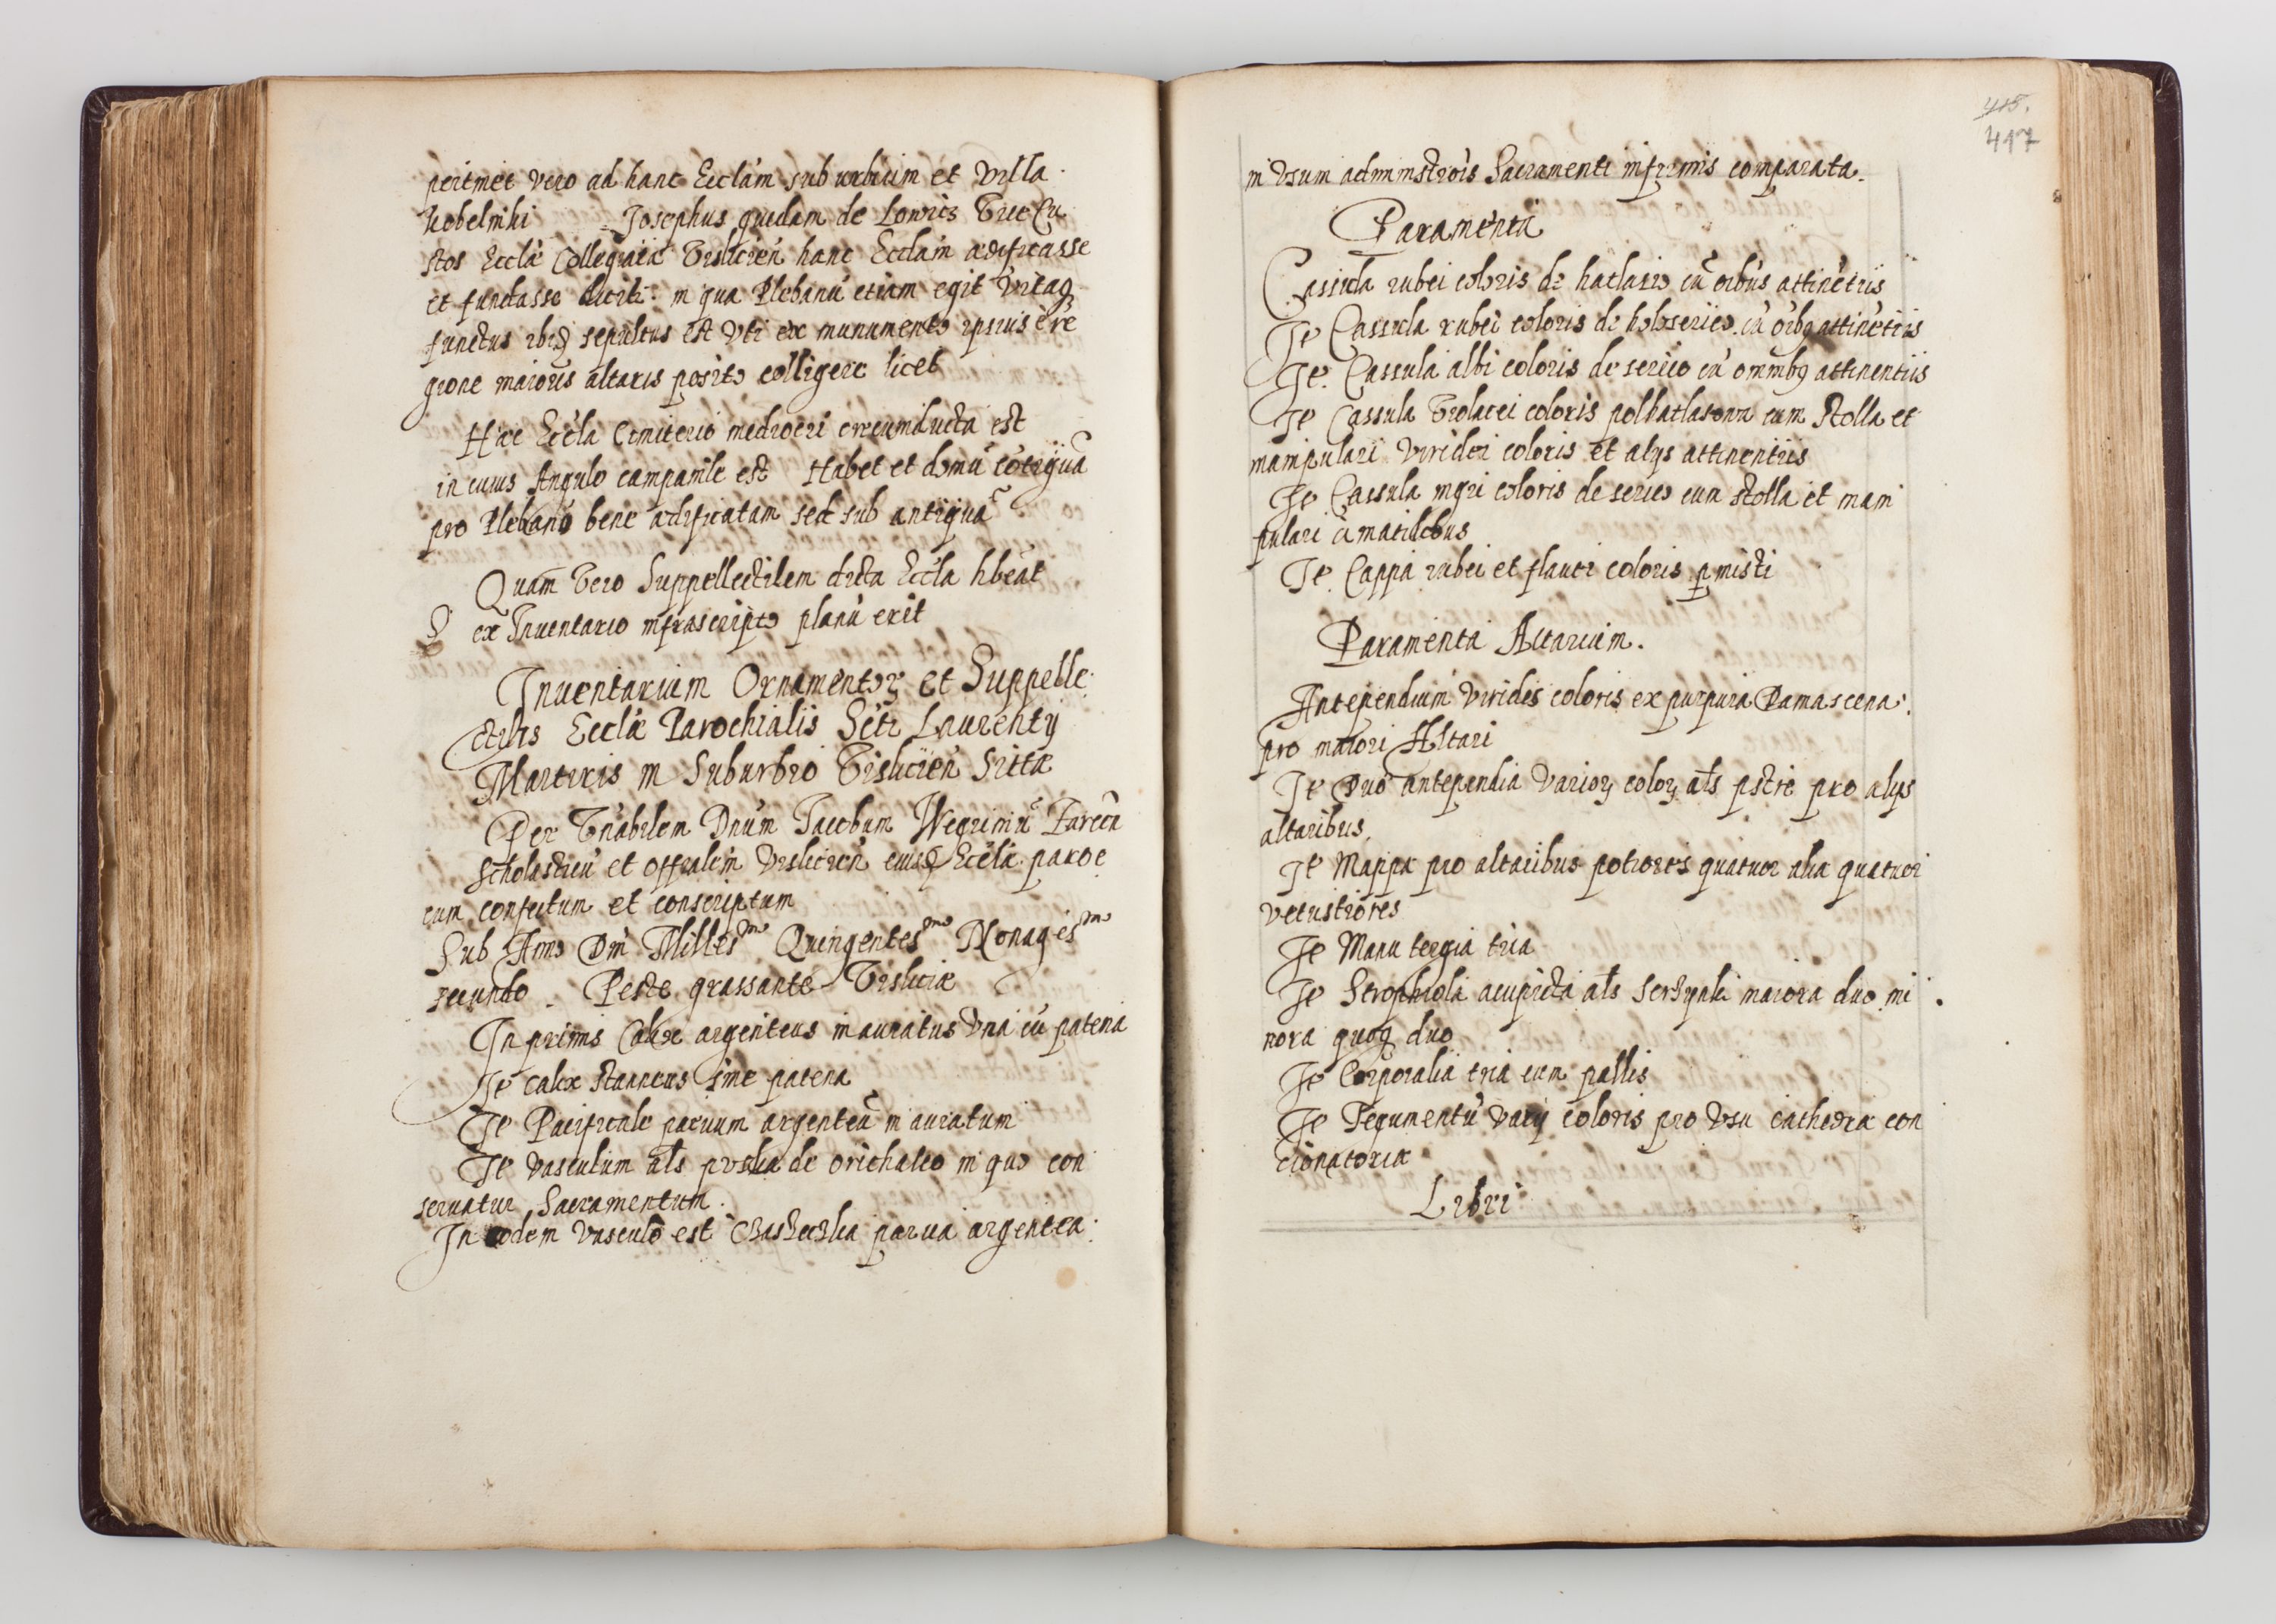 pertinet vero ad hanc Ecclam suburbium et villa
Kobelniki Josephus quidam de Lowicz Vice Cu
stos Eccla Collegiatæ Visliciēn hanc Ecclam ædificasse
et fundasse dicitr. in qua Plebanū etiam egit vitaq
functus ibiq sepultus est vti ex munumento ipsius e re
gione maioris altaris posito colligere licet
Hæc Eccla Cimiterio mediocri circumducta est
in cuius Angulo campanile est Habet et domū cōtiguā
pro Plebano bene ædificatam sed sub antiquā
Quam Vero Suppellectilem dicta Eccla hbeat
ex Inuentario infrascripto planū erit
Inuentarium Ornamentoꝝ et Suppelle
ctilis Ecclæ Parochialis Scti Laurentij
Martiris in Suburbio Visliciēn Sittæ
Per Vnabilem Dnum Jacobum
Scholasticū et offialem Visliciēn eiusq Ecclæ paro
cum confectum et conscriptum
Sub Anno Dni Milles<sup>mo</sup> Quingentes<sup>mo</sup> Nonages<sup>mo</sup>
secundo Peste grassante Visliciæ
In primis Calix argenteus inauratus vna cū patena
Ite calix stanneus sine patena
Ite Pacificale paruum argenteū in auratum
Ite vasculum als pvska de orichalco in quo con
seruatur Sacramentum.
In eodem vasculo est parua argentea.
415.
417
in vsum administrōis Sacramenti infirmis comparata.
Paramenta
Cassula rubei coloris de hatlasio cū oibus attinētiis
Ite Cassula rubei coloris de holoserico cū oibq attinētiis
Ite. Cassula albi coloris de serico cū omnibq attinentiis
Ite Cassula violacei coloris polhatlasowa cum stolla et
manipulari viridei coloris et alys attinentiis
Ite Cassula nigri coloris de serico cum stolla et mani
pulari
Ite. Cappa rubei et flaui coloris pmisti
Paramenta Altarium.
Antependium viridis coloris ex purpura Damascena.
pro maiori Altari
Ite Duo antependia varioꝝ coloꝝ als pstre pro alys
altaribus.
Ite Mappæ pro altaribus potiores quatuor aliæ quatuor
vetustiores
Ite Manu tergia tria
Ite Strophiola acupicta als maiora duo mi
nora quoq duo
Ite Corporalia tria cum pallis
Ite Tegumentū varij coloris pro vsu cathedræ con
cionatoriæ
Libri